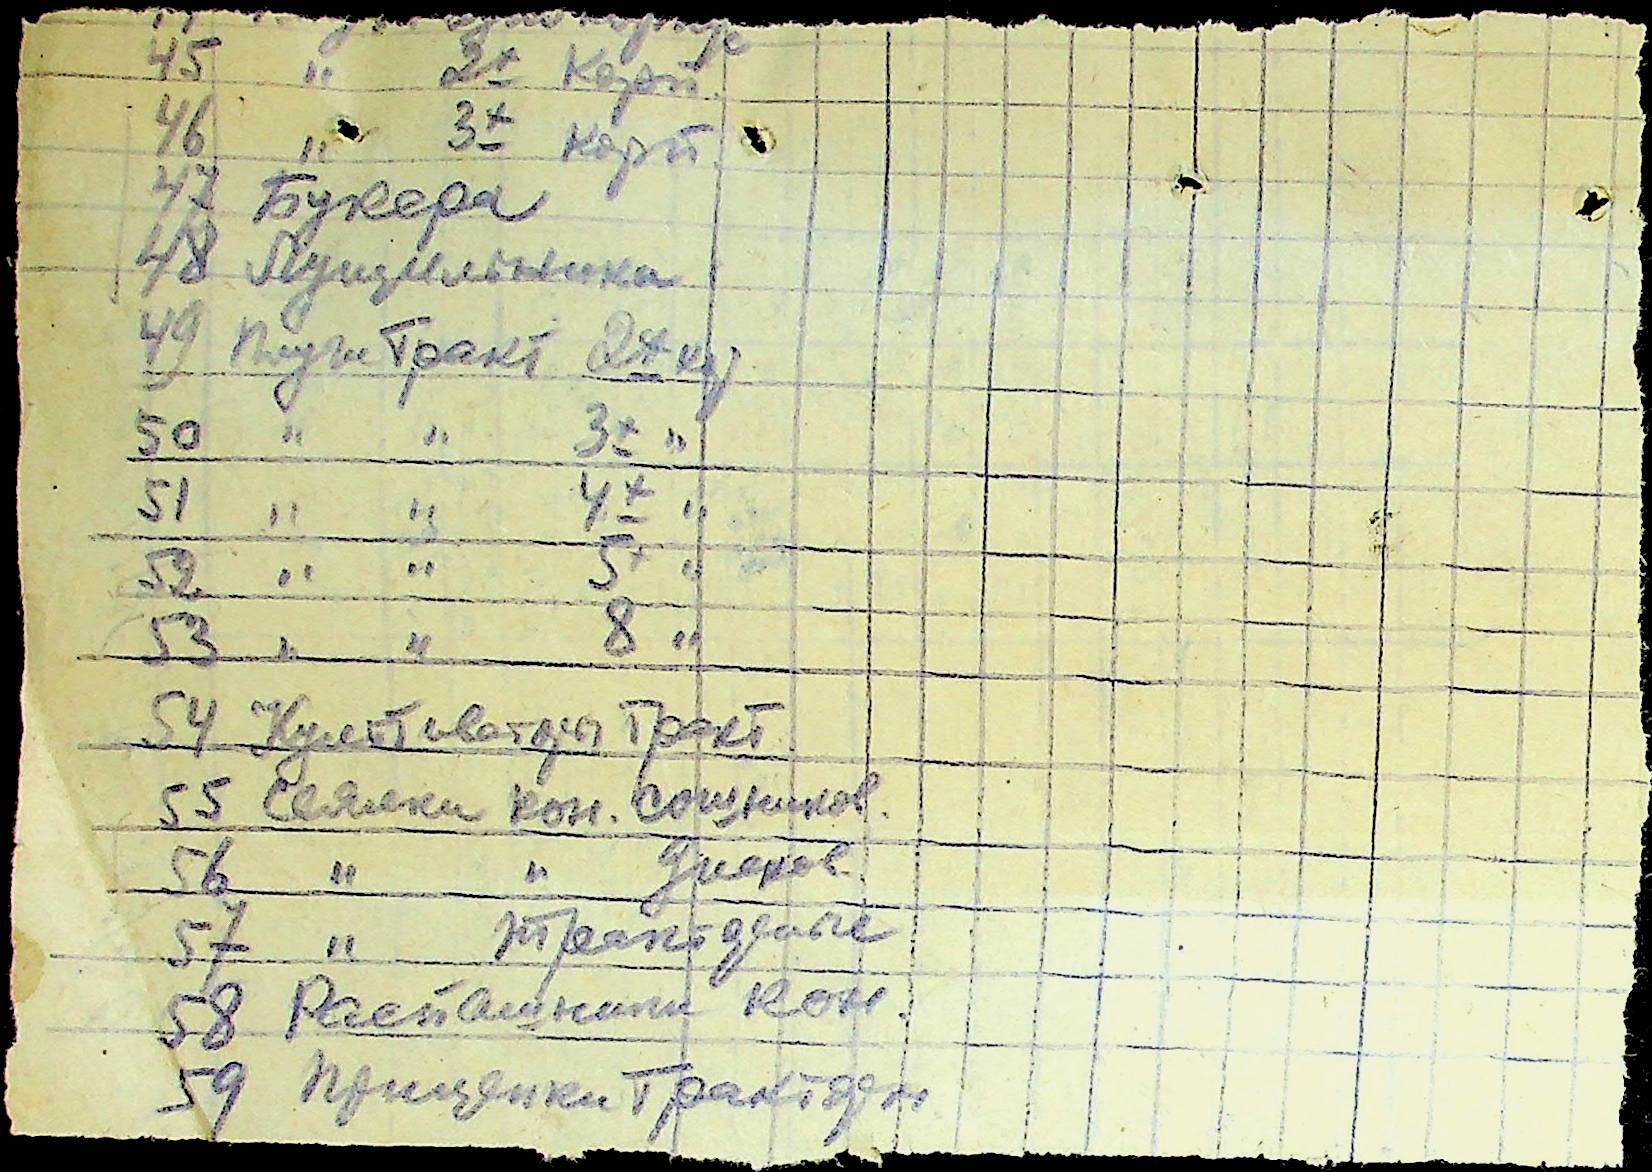 45 " 2х корп.
46 " 3х корп.
47 Букера
48 Лущильника
49 Плуги Тракт 2х кор
50 " " 3х "
51 " " 4х "
52 " " 5х "
53 " " 8 "
54 Культиваторы Тракт.
55 Сеялки кон. сошников.
56 " " дисков.
57 " Тракторные
58 Распашники кон.
59 Прицепки Тракторн